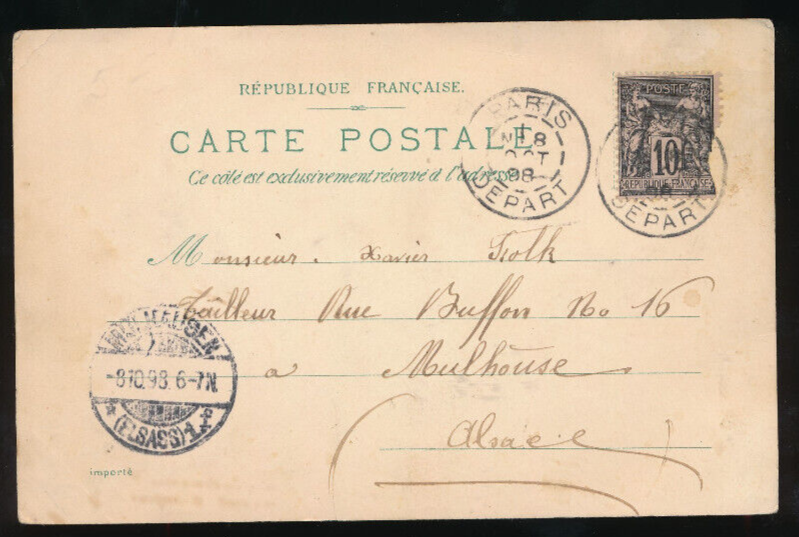 RÉPUBLIQUE FRANÇAISE.
CARTE POSTALE
Ce côté est exclusivement réservé à l'adresse
PARIS
8
OCT
98
DEPART
POSTES
10
REPUBLIQUE FRANÇAISE
DEPART
Monsieur. Xavier Folk
Tailleur Rue Buffon No 16
a Mulhouse
Alsace
MÜLHAUSEN
-8 10.98. 6-7N.
(ELSASS)
importé